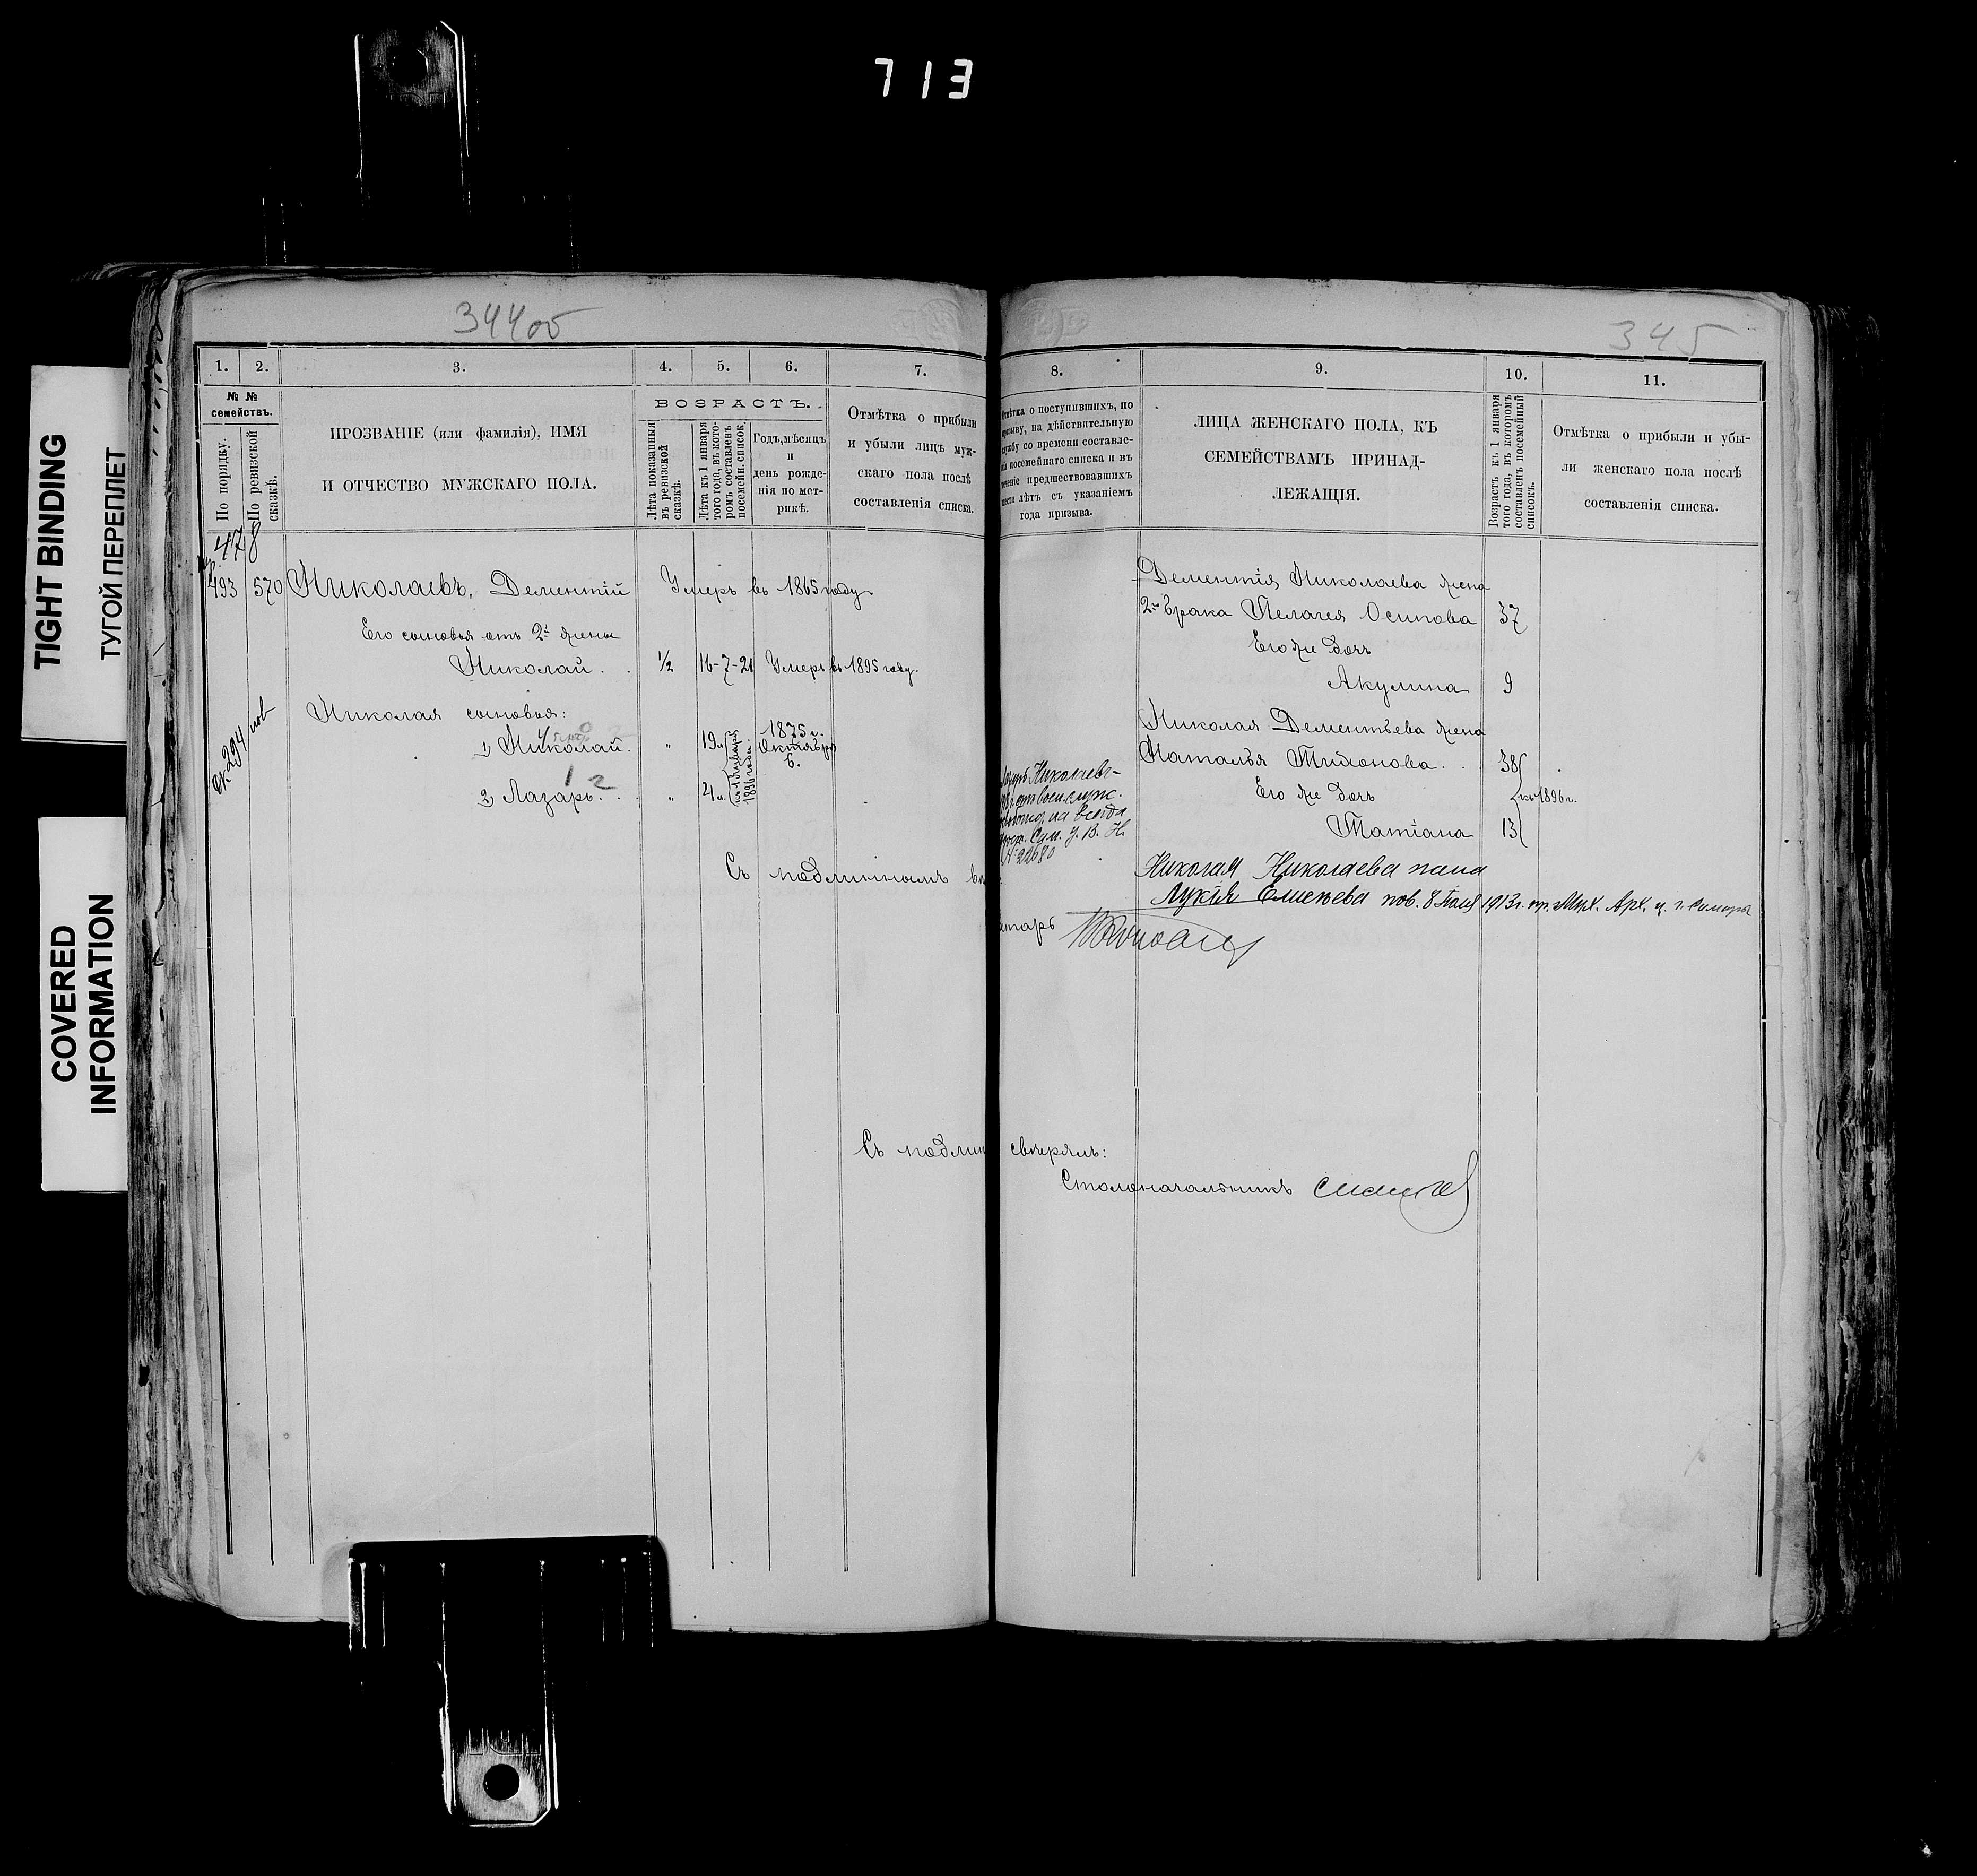 713
344об
345
TIGHT BINDING
ТУГОЙ ПЕРЕПЛЕТ
COVERED
INFORMATION
1. 2. 3. 4. 5. 6. 7.
№ №
семействъ.
По порядку.
По ревизской
сказкѣ.
ПРОЗВАНІЕ (или фамилія), ИМЯ
И ОТЧЕСТВО МУЖСКАГО ПОЛА.
ВОЗРАСТЪ.
Лѣта показанныя
въ ревизской
сказкѣ.
Лѣта къ 1 января
того года, въ кото-
ромъ составленъ
посемейн. список.
Годъ, мѣсяцъ
и
день рожде-
нія по мет-
рикѣ.
Отмѣтка о прибыли
и убыли лицъ муж-
скаго пола послѣ
составленія списка.
478
493 570 Николаевъ, Дементій Умеръ въ 1865 году
Его сыновья отъ 2й жены
Николай. 1/2 16-7-21 Умеръ въ 1895 году.
Николая сыновья:
1) Николай. " 19 1875 г. Октября 6.
2) Лазарь. " 4
къ 1 Января
1896 года.
1 2
294
Съ подлиннымъ
Съ подлин
8. 9. 10. 11.
Отмѣтка о поступившихъ, по
призыву, на дѣйствительную
службу со времени составле-
нія посемейнаго списка и въ
теченіе предшествовавшихъ
шести лѣтъ съ указаніемъ
года призыва.
ЛИЦА ЖЕНСКАГО ПОЛА, КЪ
СЕМЕЙСТВАМЪ ПРИНАД-
ЛЕЖАЩІЯ.
Возрастъ къ 1 января
того года, въ которомъ
составленъ посемейный
списокъ.
Отмѣтка о прибыли и убы-
ли женскаго пола послѣ
составленія списка.
Дементія Николаева жена
2го брака Пелагея Осипова 37
Его же дочь
Акулина 9
Николая Дементьева жена
Наталья Тихонова. 38
Его же дочь къ 1896 г.
Татіана 13
Николаевъ
на всегда
Сам. У. В. Н.
№ 22680
Николая Николаева жена
Лукія Елисеева пов. 8 Іюля 1913 г. пр. Мих. Арх. ц. г. Самары
свѣрялъ:
Столоначальникъ